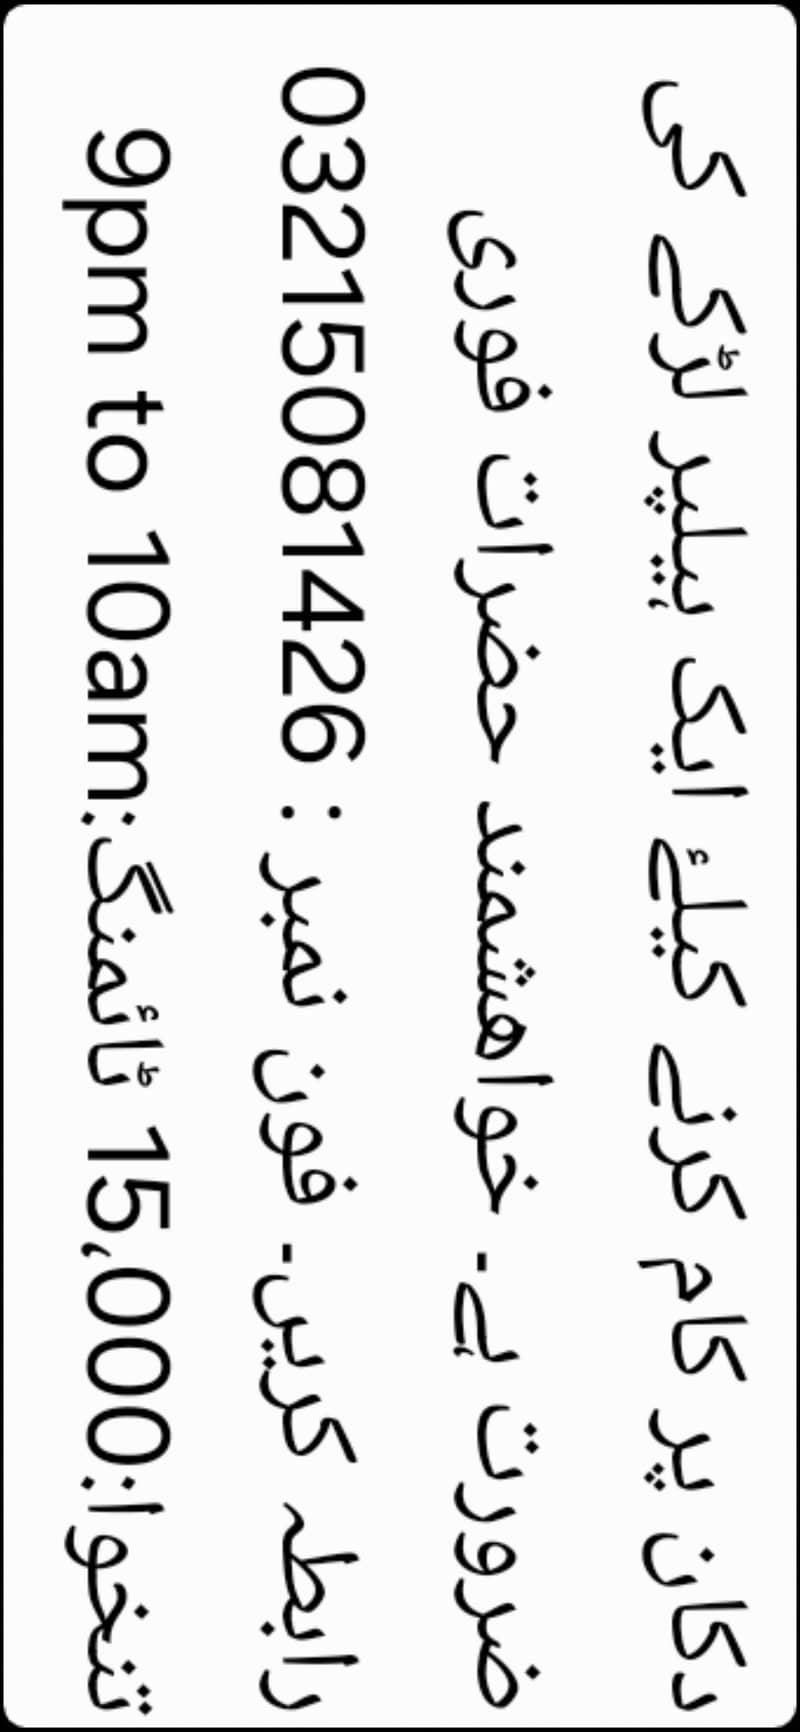 دکان پر کام کرنے کیلئے ایک ہیلپر لڑکے کی
ضرورت ہے۔ خواھشمند حضرات فوری
رابطہ کریں۔ فون نمبر : 03215081426
تنخوا:15,000 ٹائمنگ:9pm to 10am